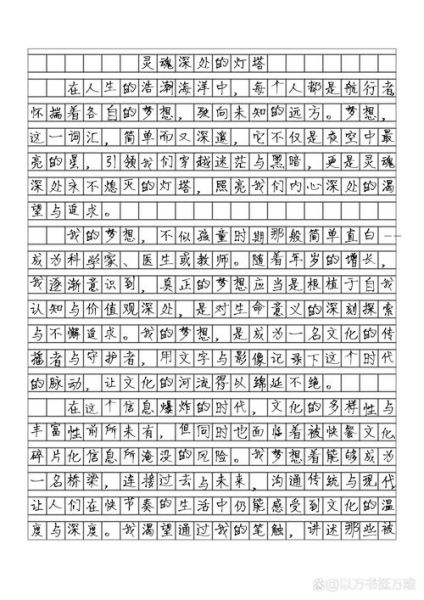 灵魂深处的灯塔
在人生的浩瀚海洋中，每个人都是航行者
怀揣着各自的梦想，驶向未知的远方。梦想，
这一词汇，简单而又深邃，它不仅是夜空中最
亮的星，引领我们穿越迷茫与黑暗，更是灵魂
深处永不熄灭的灯塔，照亮我们内心深处的渴
望与追求。
我的梦想，不似孩童时期那般简单直白--
成为科学家、医生或教师。随着年岁的增长，
我逐渐意识到，真正的梦想应当是根植于自我
认知与价值观深处，是对生命意义的深刻探索
与不懈追求。我的梦想，是成为一名文化的传
播者与守护者，用文字与影像记录下这个时代
的脉动，让文化的河流得以绵延不绝。
在这个信息爆炸的时代，文化的多样性与
丰富性前所未有，但同时也面临着被快餐文化
碎片化信息所淹没的风险。我梦想着能够成为
一名桥梁，连接过去与未来，沟通传统与现代
让人们在快节奏的生活中仍能感受到文化的温
度与深度。我渴望通过我的笔触，讲述那些被
@以万书抵万难